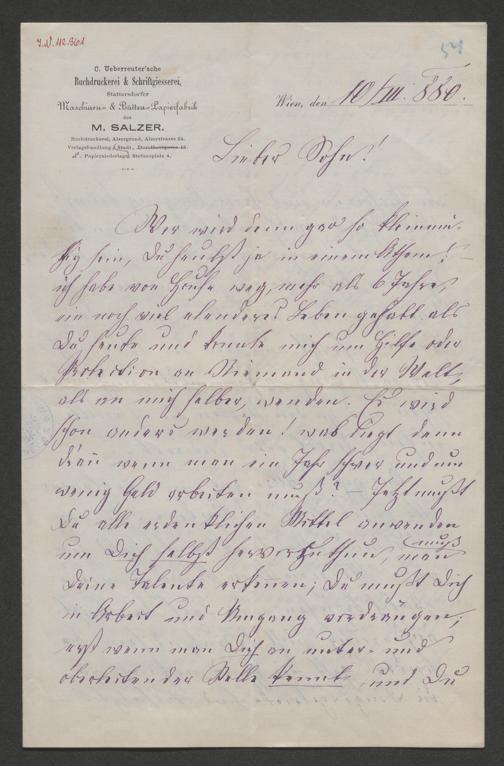 I.N. 112.361
54
C. Ueberreuter'sche
Buchdruckerei & Schriftgiesserei,
Stattersdorfer
Maschinen- & Bütten-Papierfabrik
des
M. SALZER.
Buchdruckerei, Alsergrund, Alserstrasse 24.
Verlagshandlung, Stadt,
u. Papierniederlage, Stefansplatz 4.
Wien, den 10/III. 880.
Lieber Sohn!
Wer wird denn gar so kleinmü-
thig sein, Du heulst ja in einem Athem! –
ich habe von Hause weg, mehr als 6 Jahre,
ein noch viel elenderes Leben gehabt als
Du heute und konnte mich um Hilfe oder
Protection an Niemand in der Welt,
als an mich selber, wenden. Es wird
schon anders werden! was liegt denn
d'ran wenn man ein Jahr schwer und um
wenig Geld arbeiten muß? – Jetzt mußt
Du alle erdenklichen Mittel anwenden
um Dich selbst hervorzuthun, man muß
Deine Talente erkennen; Du mußt Dich
in Arbeit und Umgang vordrängen;
erst wenn man Dich an unter- und
oberleitender Stelle kennt und Du